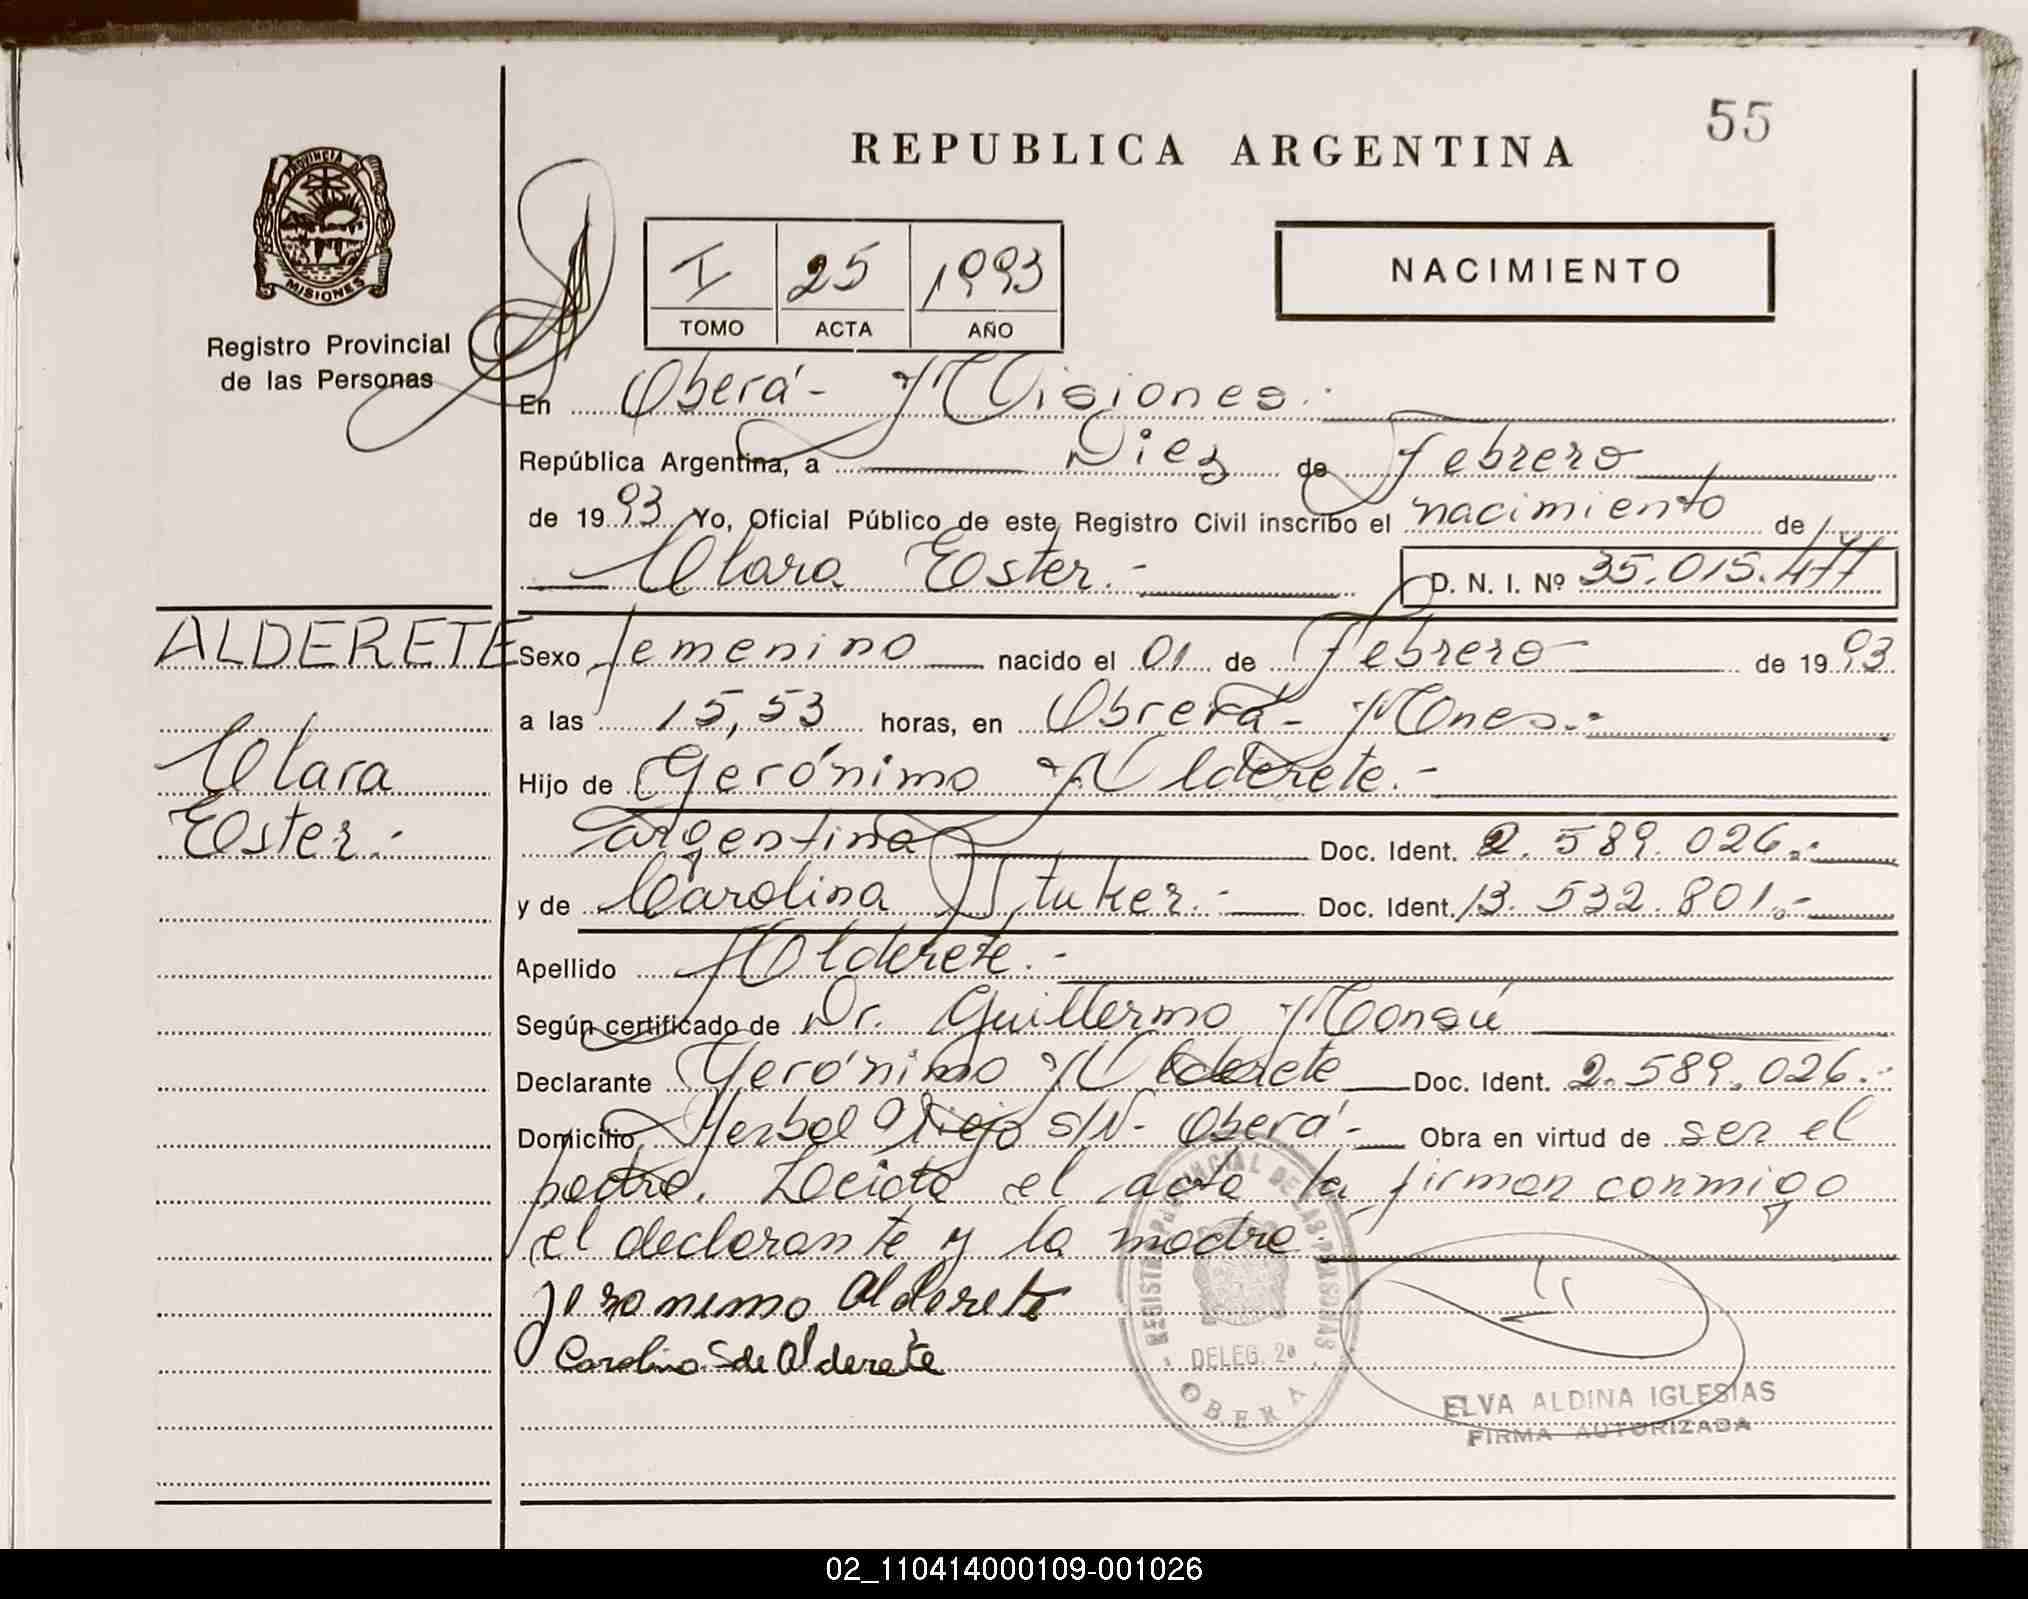 55
REPUBLICA ARGENTINA
PROVINCIA DE
MISIONES
Registro Provincial
de las Personas
I 25 1993
TOMO ACTA AÑO
NACIMIENTO
En Oberá - Misiones.-
República Argentina, a Diez de Febrero
de 1993 Yo, Oficial Público de este Registro Civil inscribo el nacimiento de
Clara Ester.- D. N. I. Nº 35.015.477
ALDERETE
Clara
Ester.-
Sexo femenino nacido el 01 de Febrero de 1993
a las 15,53 horas, en Obrera - Mnes.-
Hijo de Gerónimo Alderete.-
argentina Doc. Ident. 2.589.026.-
y de Carolina Stuker.- Doc. Ident. 13.532.801.-
Apellido Alderete.-
Según certificado de Dr. Guillermo
Declarante Gerónimo Alderete Doc. Ident. 2.589.026.-
Domicilio Yerbal Viejo s/N - Oberá - Obra en virtud de ser el
padre. Leída el acta la firman conmigo
el declarante y la madre
Jeronimo Alderete
Carolina S de Alderete
REGISTRO PROVINCIAL DE LAS PERSONAS
DELEG. 2ª
OBERA
ELVA ALDINA IGLESIAS
FIRMA AUTORIZADA
02_110414000109-001026